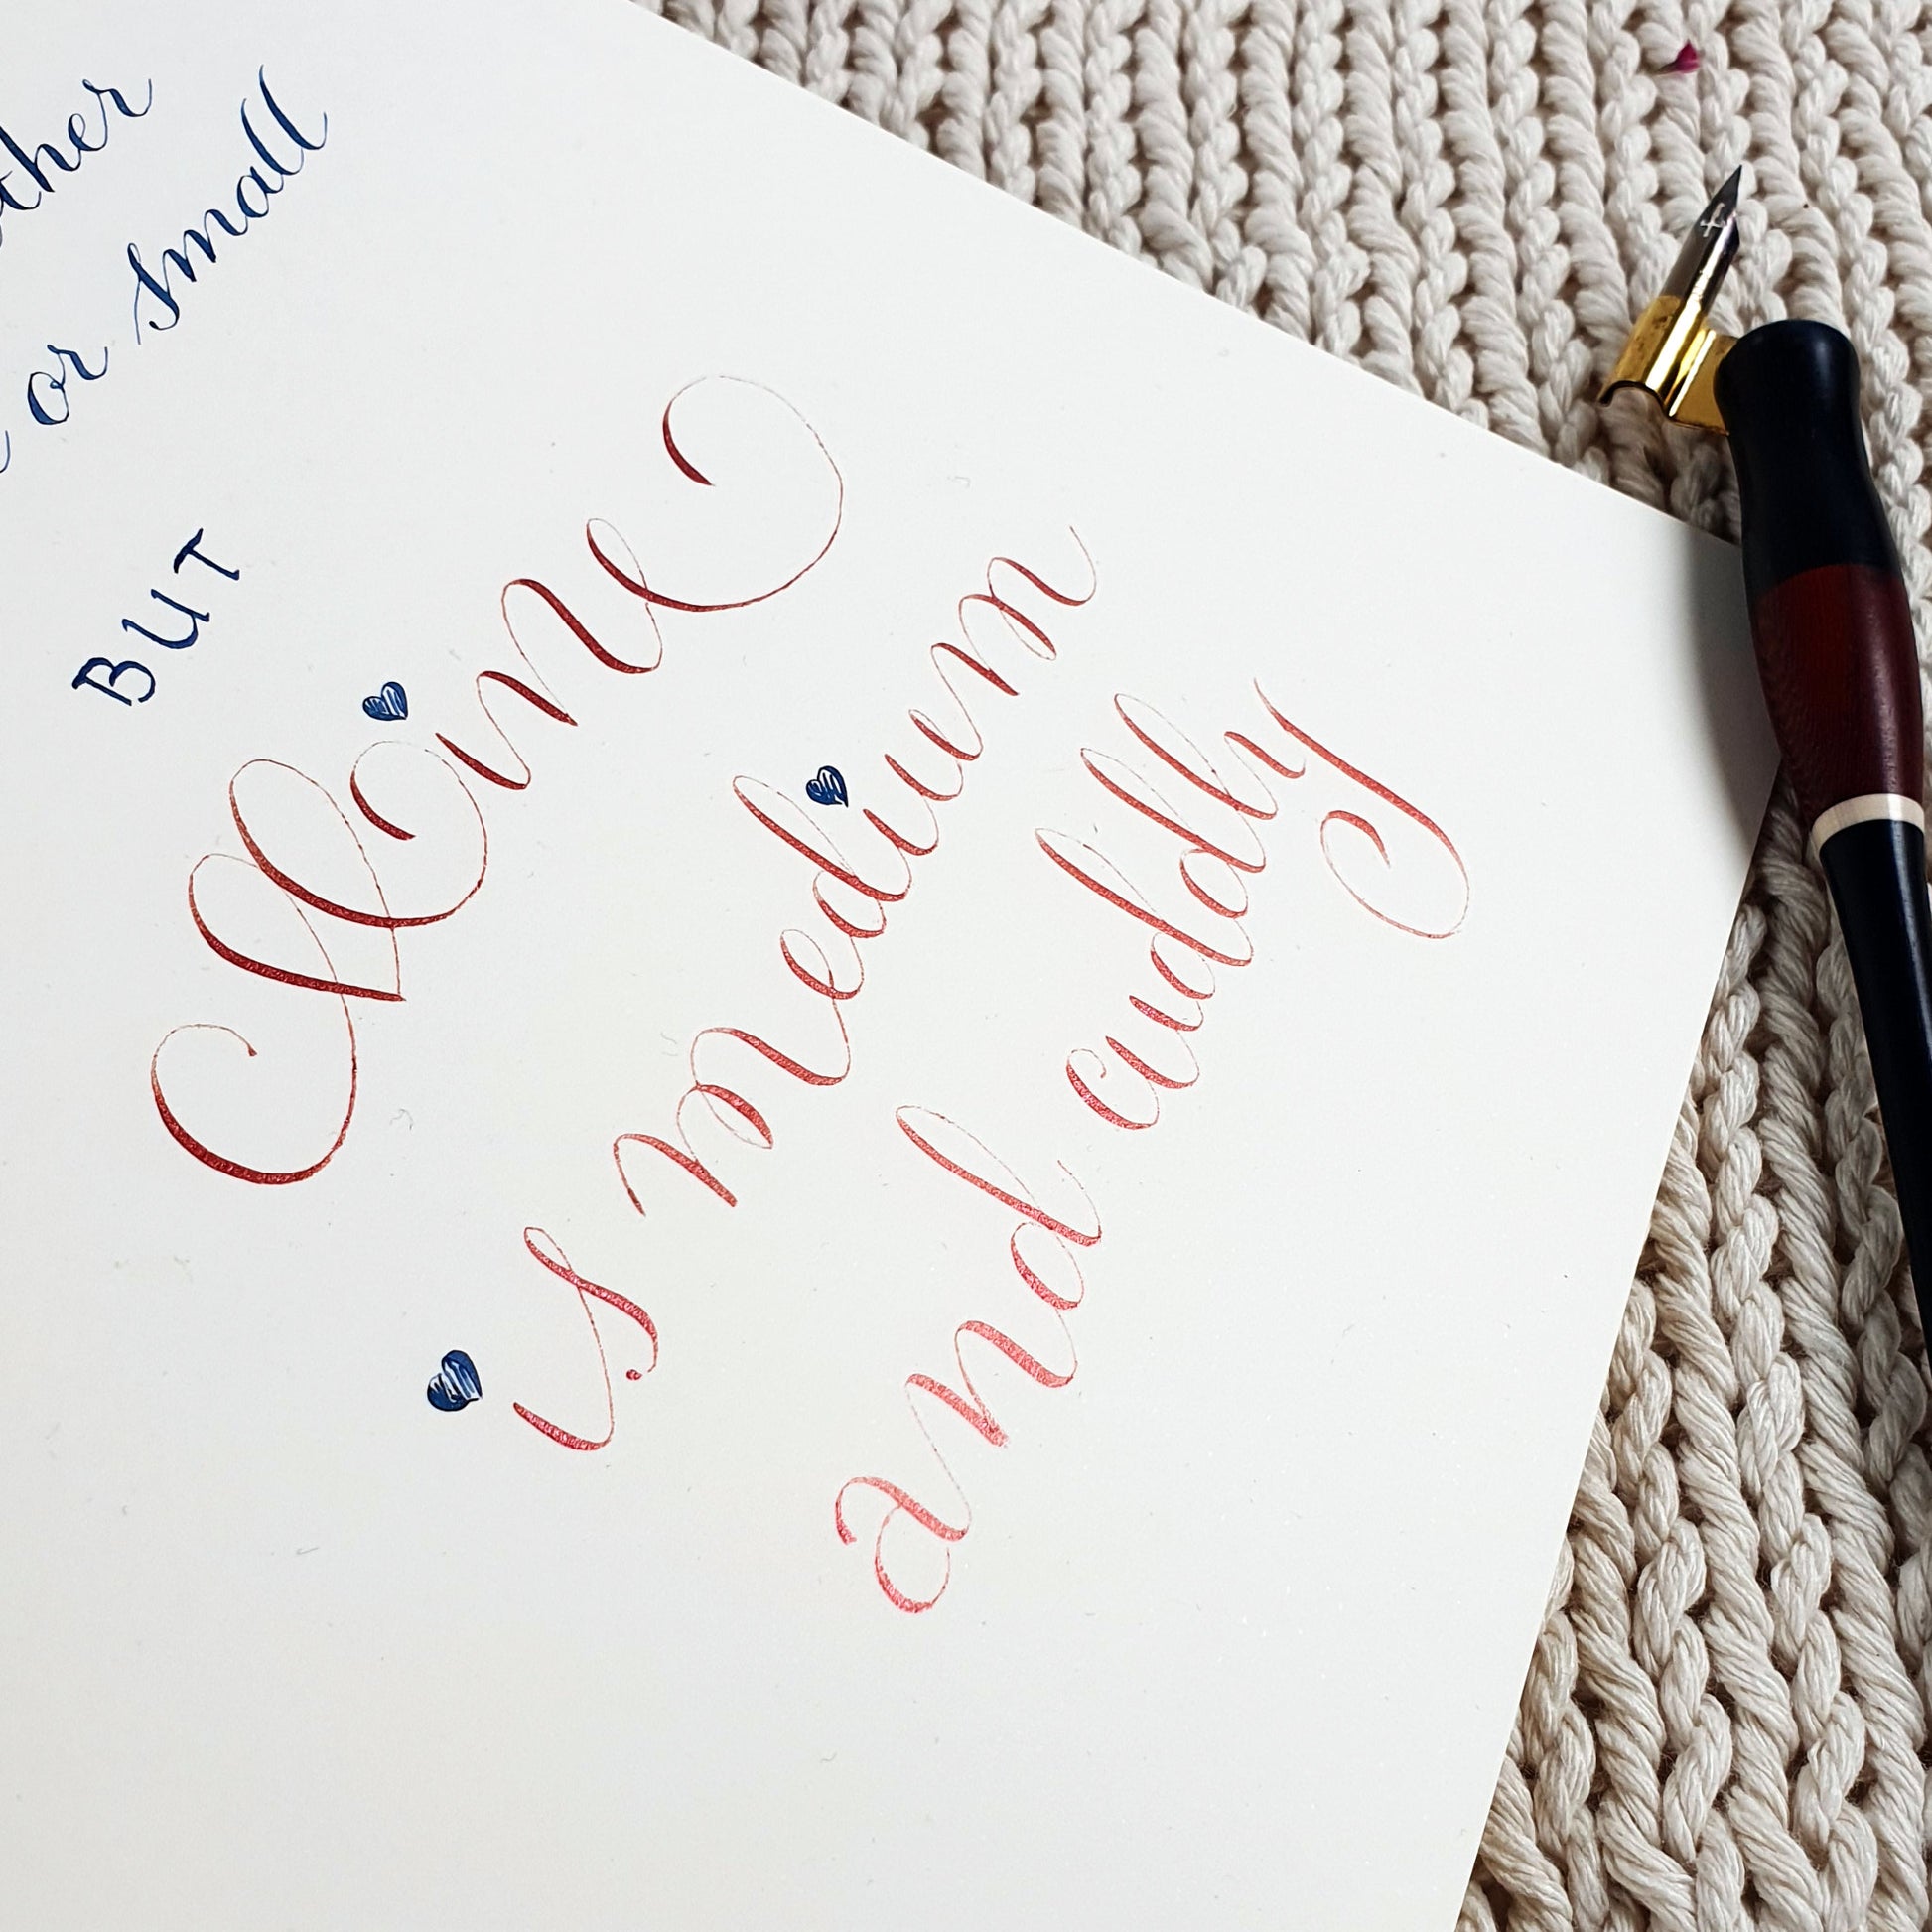 or small
BUT
Mine
is medium
and cuddly